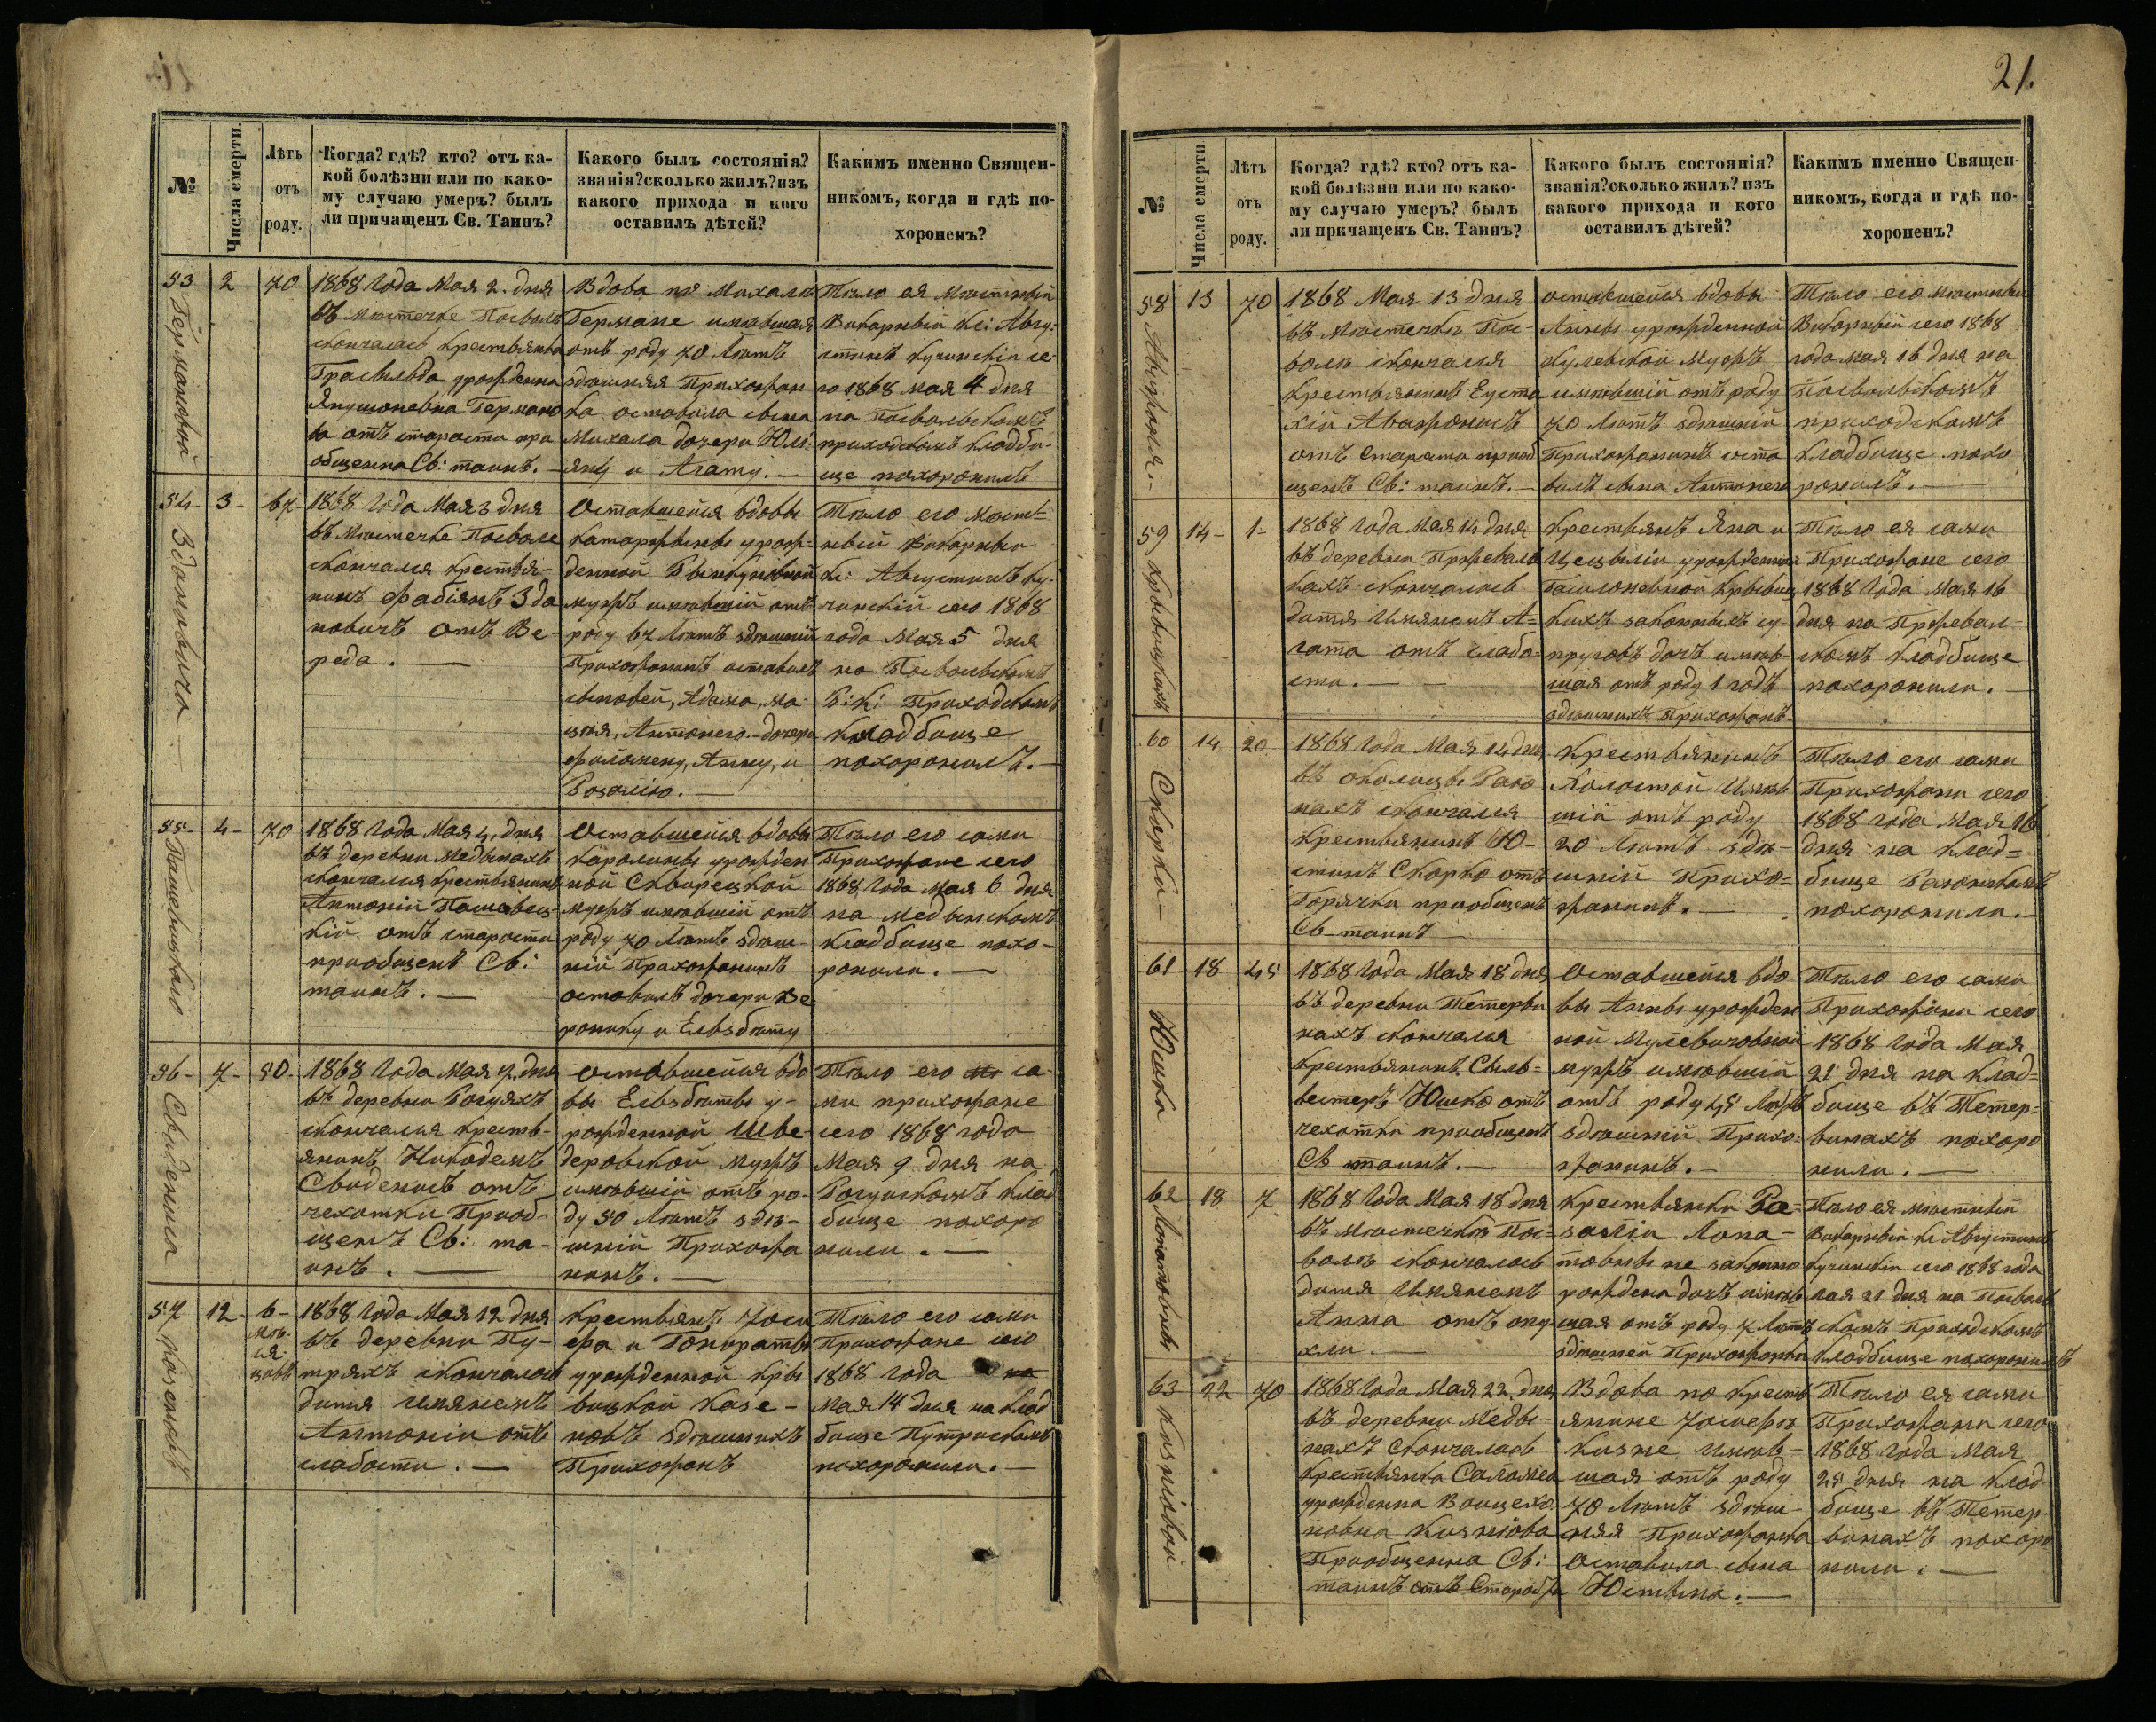 №
Числа смерти.
Лѣтъ
отъ
роду.
Когда? гдѣ? кто? отъ ка-
кой болѣзни или по како-
му случаю умеръ? былъ
ли причащенъ Св. Таинъ?
Какого былъ состоянія?
званія? сколько жилъ? изъ
какого прихода и кого
оставилъ дѣтей?
Какимъ именно Священ-
никомъ, когда и гдѣ по-
хороненъ?
53
Германовой
2
70
1868 Года Мая 2. дня
въ мѣстечке Посволѣ
скончалась крестьянка
урожденна
Германо
ва отъ старости прі
общенна Св: таинъ. —
Вдова по Михалѣ
Германе имѣвшая
отъ роду 70 Лѣтъ
здѣшняя Прихожан
ка оставила сына
Михала дочери Юлі
яну и Агату. —
Тѣло ея мѣстный
Викарный Кс: Авгу:
стинъ Кучинскій се
го 1868 мая 4 дня
на Посвольскомъ
приходскомъ кладби-
ще похоронилъ
54-
Здановича
3-
67-
1868 Года Мая 3 дня
въ мѣстечке Посволе
скончался крестья-
нинъ Фабіянъ Зда
новичъ отъ Ве-
реда. —
Оставшейся вдовы
Катаржыны урож-
денной
мужъ имѣвшій отъ
роду 67 Лѣтъ здѣшній
Прихожанинъ оставилъ
сыновей, Адама, Ма-
цея, Антонего. — дочери
Филомену, Анну, и
Розалію. —
Тѣло его мѣст-
ный Викарный
Кс: Августинъ Ку-
чинскій сего 1868
года Мая 5 дня
на Посвольскомъ
Р: К: Приходскомъ
кладбище
похоронилъ. —
55-
Пашевицкаго
4-
70
1868 Года Мая 4 дня
въ деревни Медынахъ
скончался крестьянинъ
Антоній Пашевиц-
кій отъ старости
приобщенъ Св:
таинъ. —
Оставшейся вдовы
Каролины урожден
ной Скворецкой
мужъ имѣвшій отъ
роду 70 Лѣтъ здѣш-
ній Прихожанинъ
оставилъ дочери Ве
ронику и Ельзбѣту
Тѣло его сами
Прихожане сего
1868 Года Мая 6 дня
на Медынскомъ
кладбище похо-
ронили. —
56-
Свиденица
7-
50-
1868 Года Мая 7 дня
въ деревни Рагуяхъ
скончался кресть-
янинъ Никодемъ
отъ
чехотки Приоб-
щенъ Св: та-
инъ. —
оставшейся вдо
вы Ельзбѣты у-
рожденной Шве-
деровской мужъ
имѣвшій отъ ро-
ду 50 Лѣтъ здѣ-
шній Прихожа
нинъ. —
Тѣло его са-
ми прихожане
сего 1868 года
Мая 9 дня на
Рагуискомъ клад
бище похоро
нили. —
57
Казеновъ
12-
6-
мѣ-
ся-
цовъ
1868 Года Мая 12 дня
въ деревни Пу-
тряхъ скончалось
дитя имянемъ
Антоніи отъ
слабости. —
Крестьянъ Іоси
фа и Гонораты
урожденной Кры
вицкой Казе-
новъ здѣшнихъ
Прихожанъ
Тѣло его сами
Прихожане сего
1868 года
Мая 14 дня на клад
бище Путрискомъ
похоронили. —
21.
№
Числа смерти
Лѣтъ
отъ
роду.
Когда? гдѣ? кто? отъ ка-
кой болѣзни или по како-
му случаю умеръ? былъ
ли причащенъ Св. Таинъ?
Какого былъ состоянія?
званія? сколько жилъ? изъ
какого прихода и кого
оставилъ дѣтей?
Какимъ именно Священ-
никомъ, когда и гдѣ по-
хороненъ?
58
13
70
1868 Мая 13 дня
въ мѣстечкѣ Пос-
волѣ скончался
крестьянинъ Еуста
хій
отъ старости приоб
щенъ Св: таинъ. —
оставшейся вдовы
Анны урожденной
Кулевской мужъ
имѣвшій отъ роду
70 Лѣтъ здѣшній
Прихожанинъ оста
вилъ сына Антонего
Тѣло его мѣстный
Викарный сего 1868
года мая 16 дня на
Посвольскомъ
приходскомъ
кладбище похо-
ронилъ. —
59
Крывицкихъ
14-
1-
1868 Года Мая 14 дня
въ деревни
кахъ скончалось
дитя имянемъ А-
гата отъ слабо-
сти. —
Крестьянъ Яна и
Цецыліи урожденной
Крывиц
кихъ законныхъ су-
пруговъ дочъ имѣв-
шая отъ роду 1 годъ
здѣшнихъ Прихожанъ.
Тѣло ея сами
Прихожане сего
1868 Года Мая 16
дня на
скомъ кладбище
похоронили. —
60
Скорка —
14
20
1868 Года Мая 14 дня
въ околицы Рако
нахъ скончался
крестьянинъ Ю-
стинъ Скорко отъ
Горячки приобщенъ
Св таинъ —
Крестьянинъ
Холостой имѣв
шій отъ роду
20 Лѣтъ здѣ-
шній Прихо-
жанинъ. —
Тѣло его сами
Прихожани сего
1868 Года Мая 16
дня на клад-
бище Раконскомъ
похоронили. —
61
Юшка
18
45
1868 Года Мая 18 дня
въ деревни Тетерви
нахъ скончался
крестьянинъ Сыль-
вестеръ Юшко отъ
чехотки приобщенъ
Св таинъ. —
Оставшейся вдо
вы Анны урожден
ной Мулевичовной
мужъ имѣвшій
отъ роду 45 Лѣтъ
здѣшній Прихо-
жанинъ. —
Тѣло его сами
Прихожани сего
1868 Года Мая
21 дня на клад-
бище въ Тетер-
винахъ похоро
нили. —
62
Лопатовны
18
7
1868 Года Мая 18 дня
въ мѣстечкѣ Пос-
волѣ скончалось
дитя имянемъ
Анна отъ опу
хли. —
Крестьянки Ро-
заліи Лопа-
товны не законно
рождена дочъ имѣв
шая отъ роду 7 Лѣтъ
здѣшней Прихожанки
Тѣло ея мѣстный
Викарный Кс Августинъ
Кучинскій сего 1868 года
мая 21 дня на Посволь
скомъ Приходскомъ
кладбище похоронилъ
63
Кизніовой
22
70
1868 Года Мая 22 дня
въ деревни Меды-
нахъ скончалась
крестьянка Саломеа
урожденна Войцехо
новна Кизніова
Приобщенна Св:
таинъ отъ Старости
Вдова по кресть
янине Іосифѣ
Кизне имѣв-
шая отъ роду
70 Лѣтъ здѣш-
няя Прихожанка
оставила сына
Юстына. —
Тѣло ея сами
Прихожани сего
1868 Года Мая
25 дня на клад-
бище въ Тетер-
винахъ похоро
нили. —